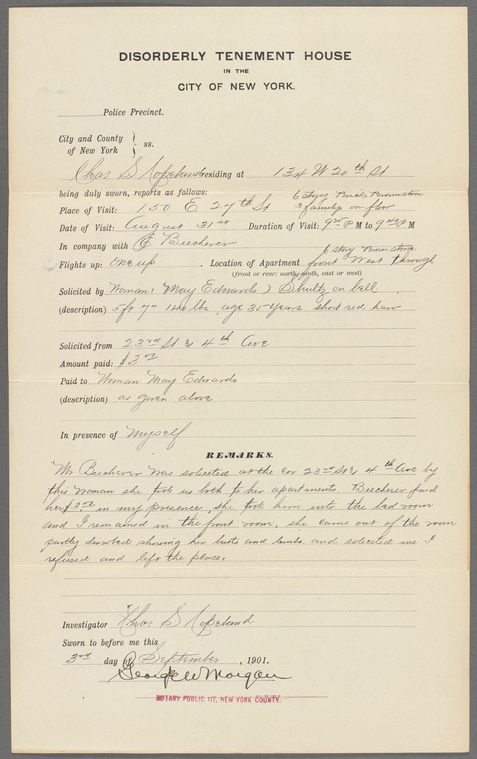 DISORDERLY TENEMENT HOUSE
IN THE
CITY OF NEW YORK.
Police Precinct.
City and County
of New York } ss.
Chas S Copeland residing at 134 W 20th St
being duly sworn, reports as follows: 6 story Brick Brownstone
Place of Visit: 150 E 27th St 3 family on floor
Date of Visit: August 31st Duration of Visit: 9 P M to 9 P M
In company with C Bucherer
story Brownstone
Flights up: one up . Location of Apartment front West through
(front or rear: north, south, east or west)
Solicited by Woman (May Edwards) Shultz on bell .
(description) 5 ft 7 in 146 lbs, age 35 years short red hair
Solicited from 23rd St & 4th Ave
Amount paid: $2.00
Paid to Woman May Edwards
(description) as given above
In presence of Myself
REMARKS.
"Mr Bucherer was solicited at the cor 23rd St & 4th Ave by
this woman she took us both to her apartments. Bucherer paid
her $2.00 in my presence, she took him into the bed room
and I remained in the front room. she came out of the room
partly disrobed showing her busts and limbs. and solicited me I
refused and left the place.
Investigator Chas S Copeland
Sworn to before me this
3rd day of September , 1901.
George W Morgan
NOTARY PUBLIC 177, NEW YORK COUNTY.